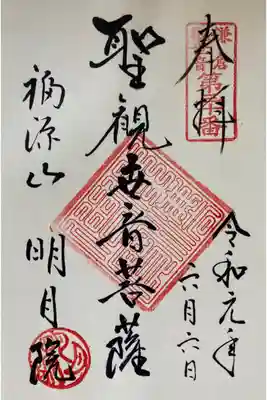 奉拝
鎌倉
観音
第三十番
令和元年
六月六日
聖観世音菩薩
福源山
明月院